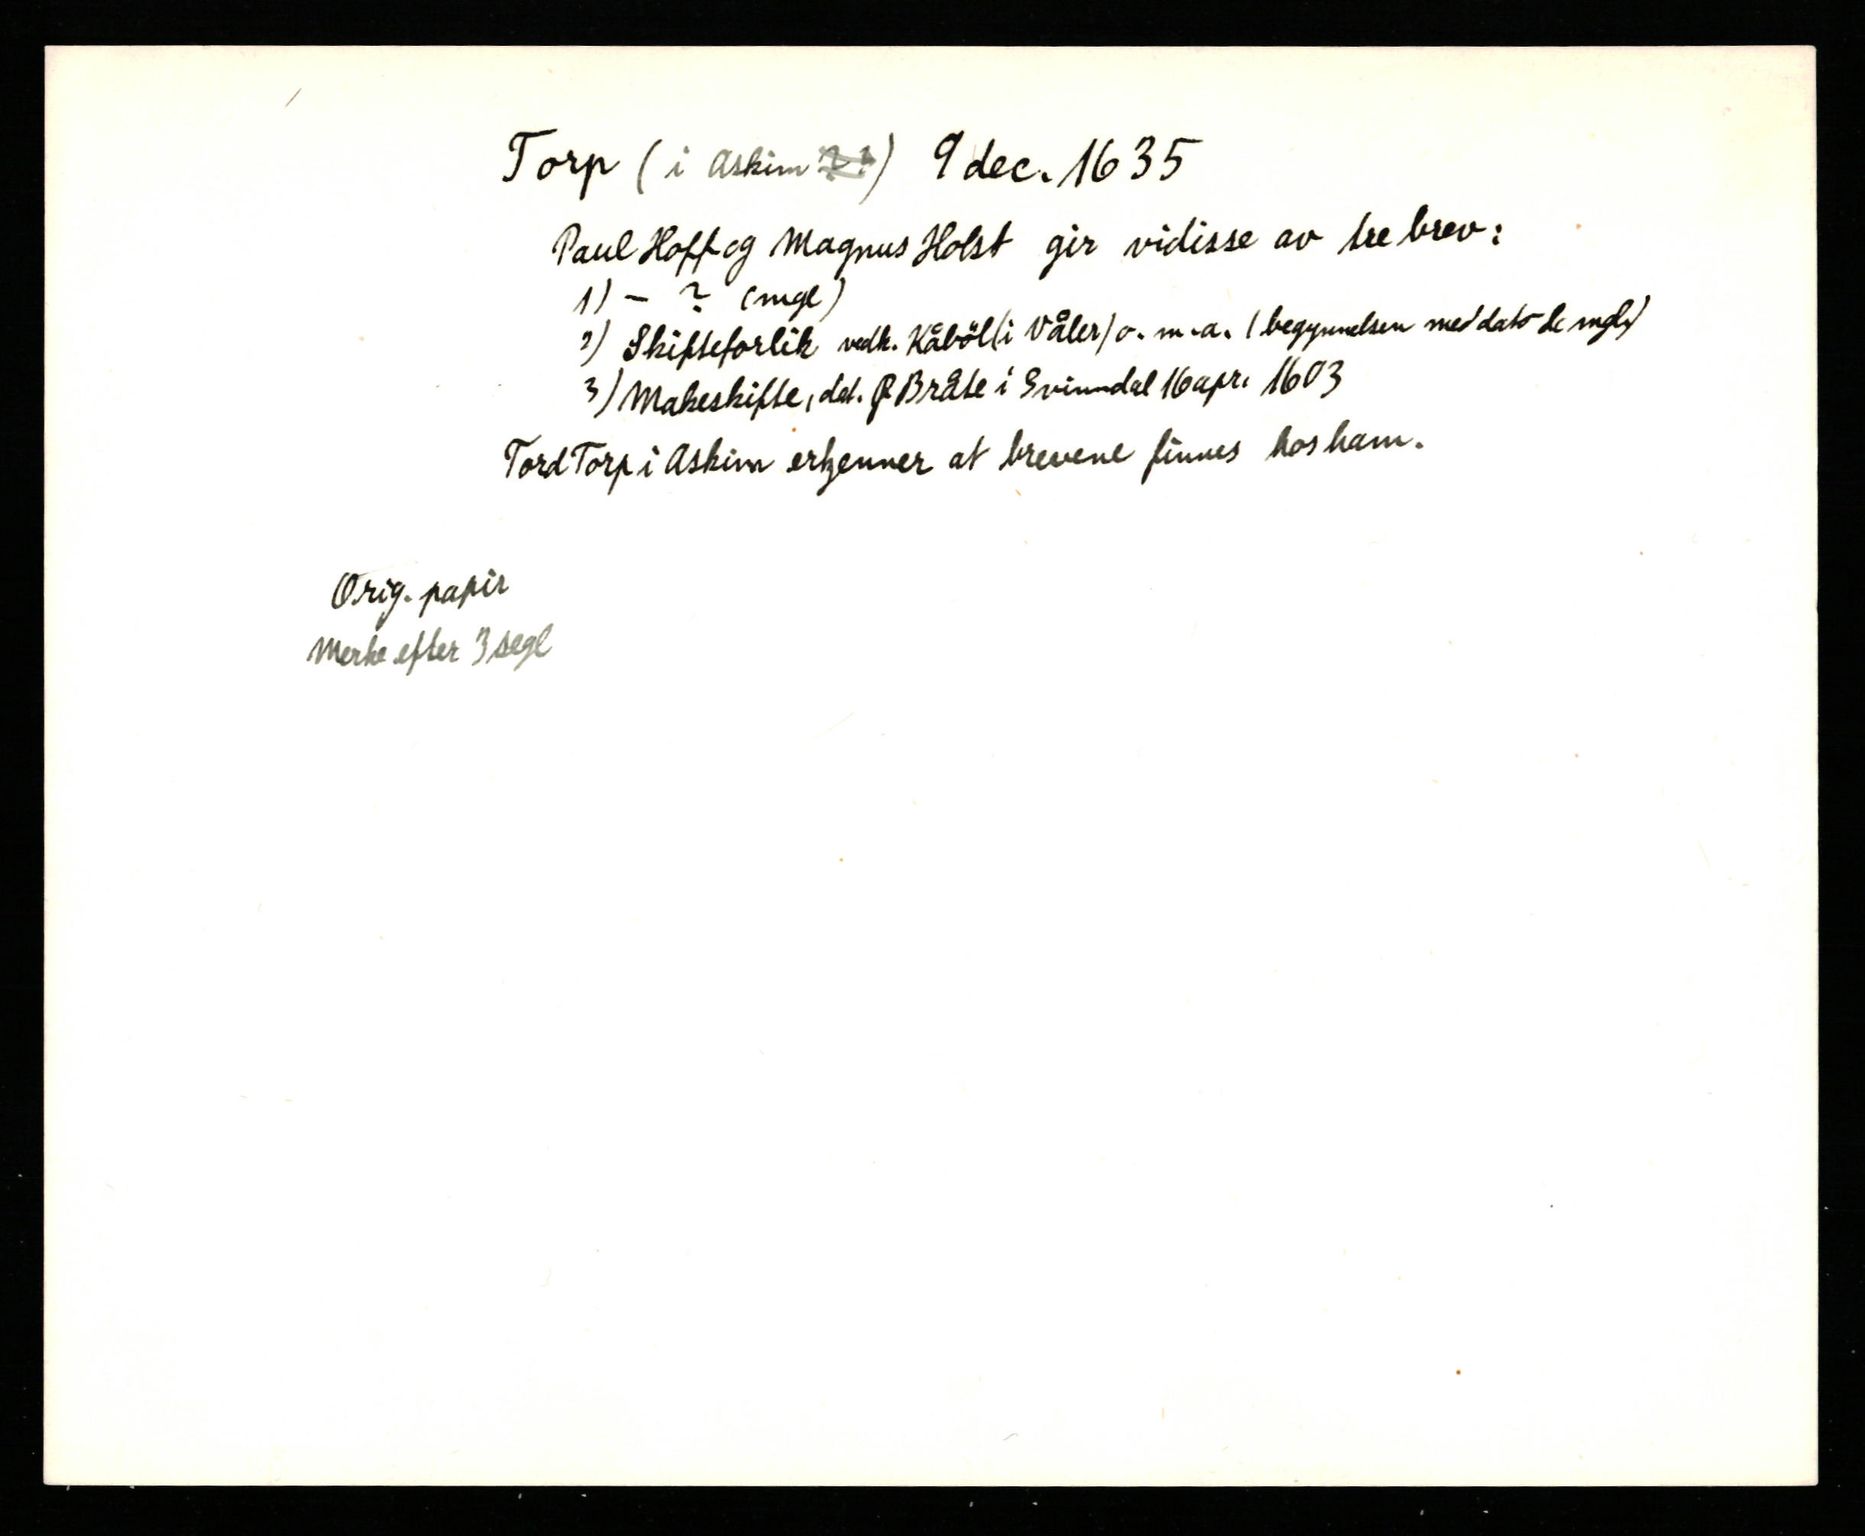 Torp (i Askim ? ?) 9 dec. 1635
Paul Hoff og Magnus Holst gir vidisse av tre brev:
1) - ? (mgl)
2) Skifteforlik vedk. Kåböl (i Våler) o. m. a. (begynnelsen med dato mgl.)
3) Makeskifte, dat. Bråte i Svinndal 16 apr. 1603
Tord Torp i Askim erkjenner at brevene finnes hos ham.
Orig. papir
Merke efter 3 segl